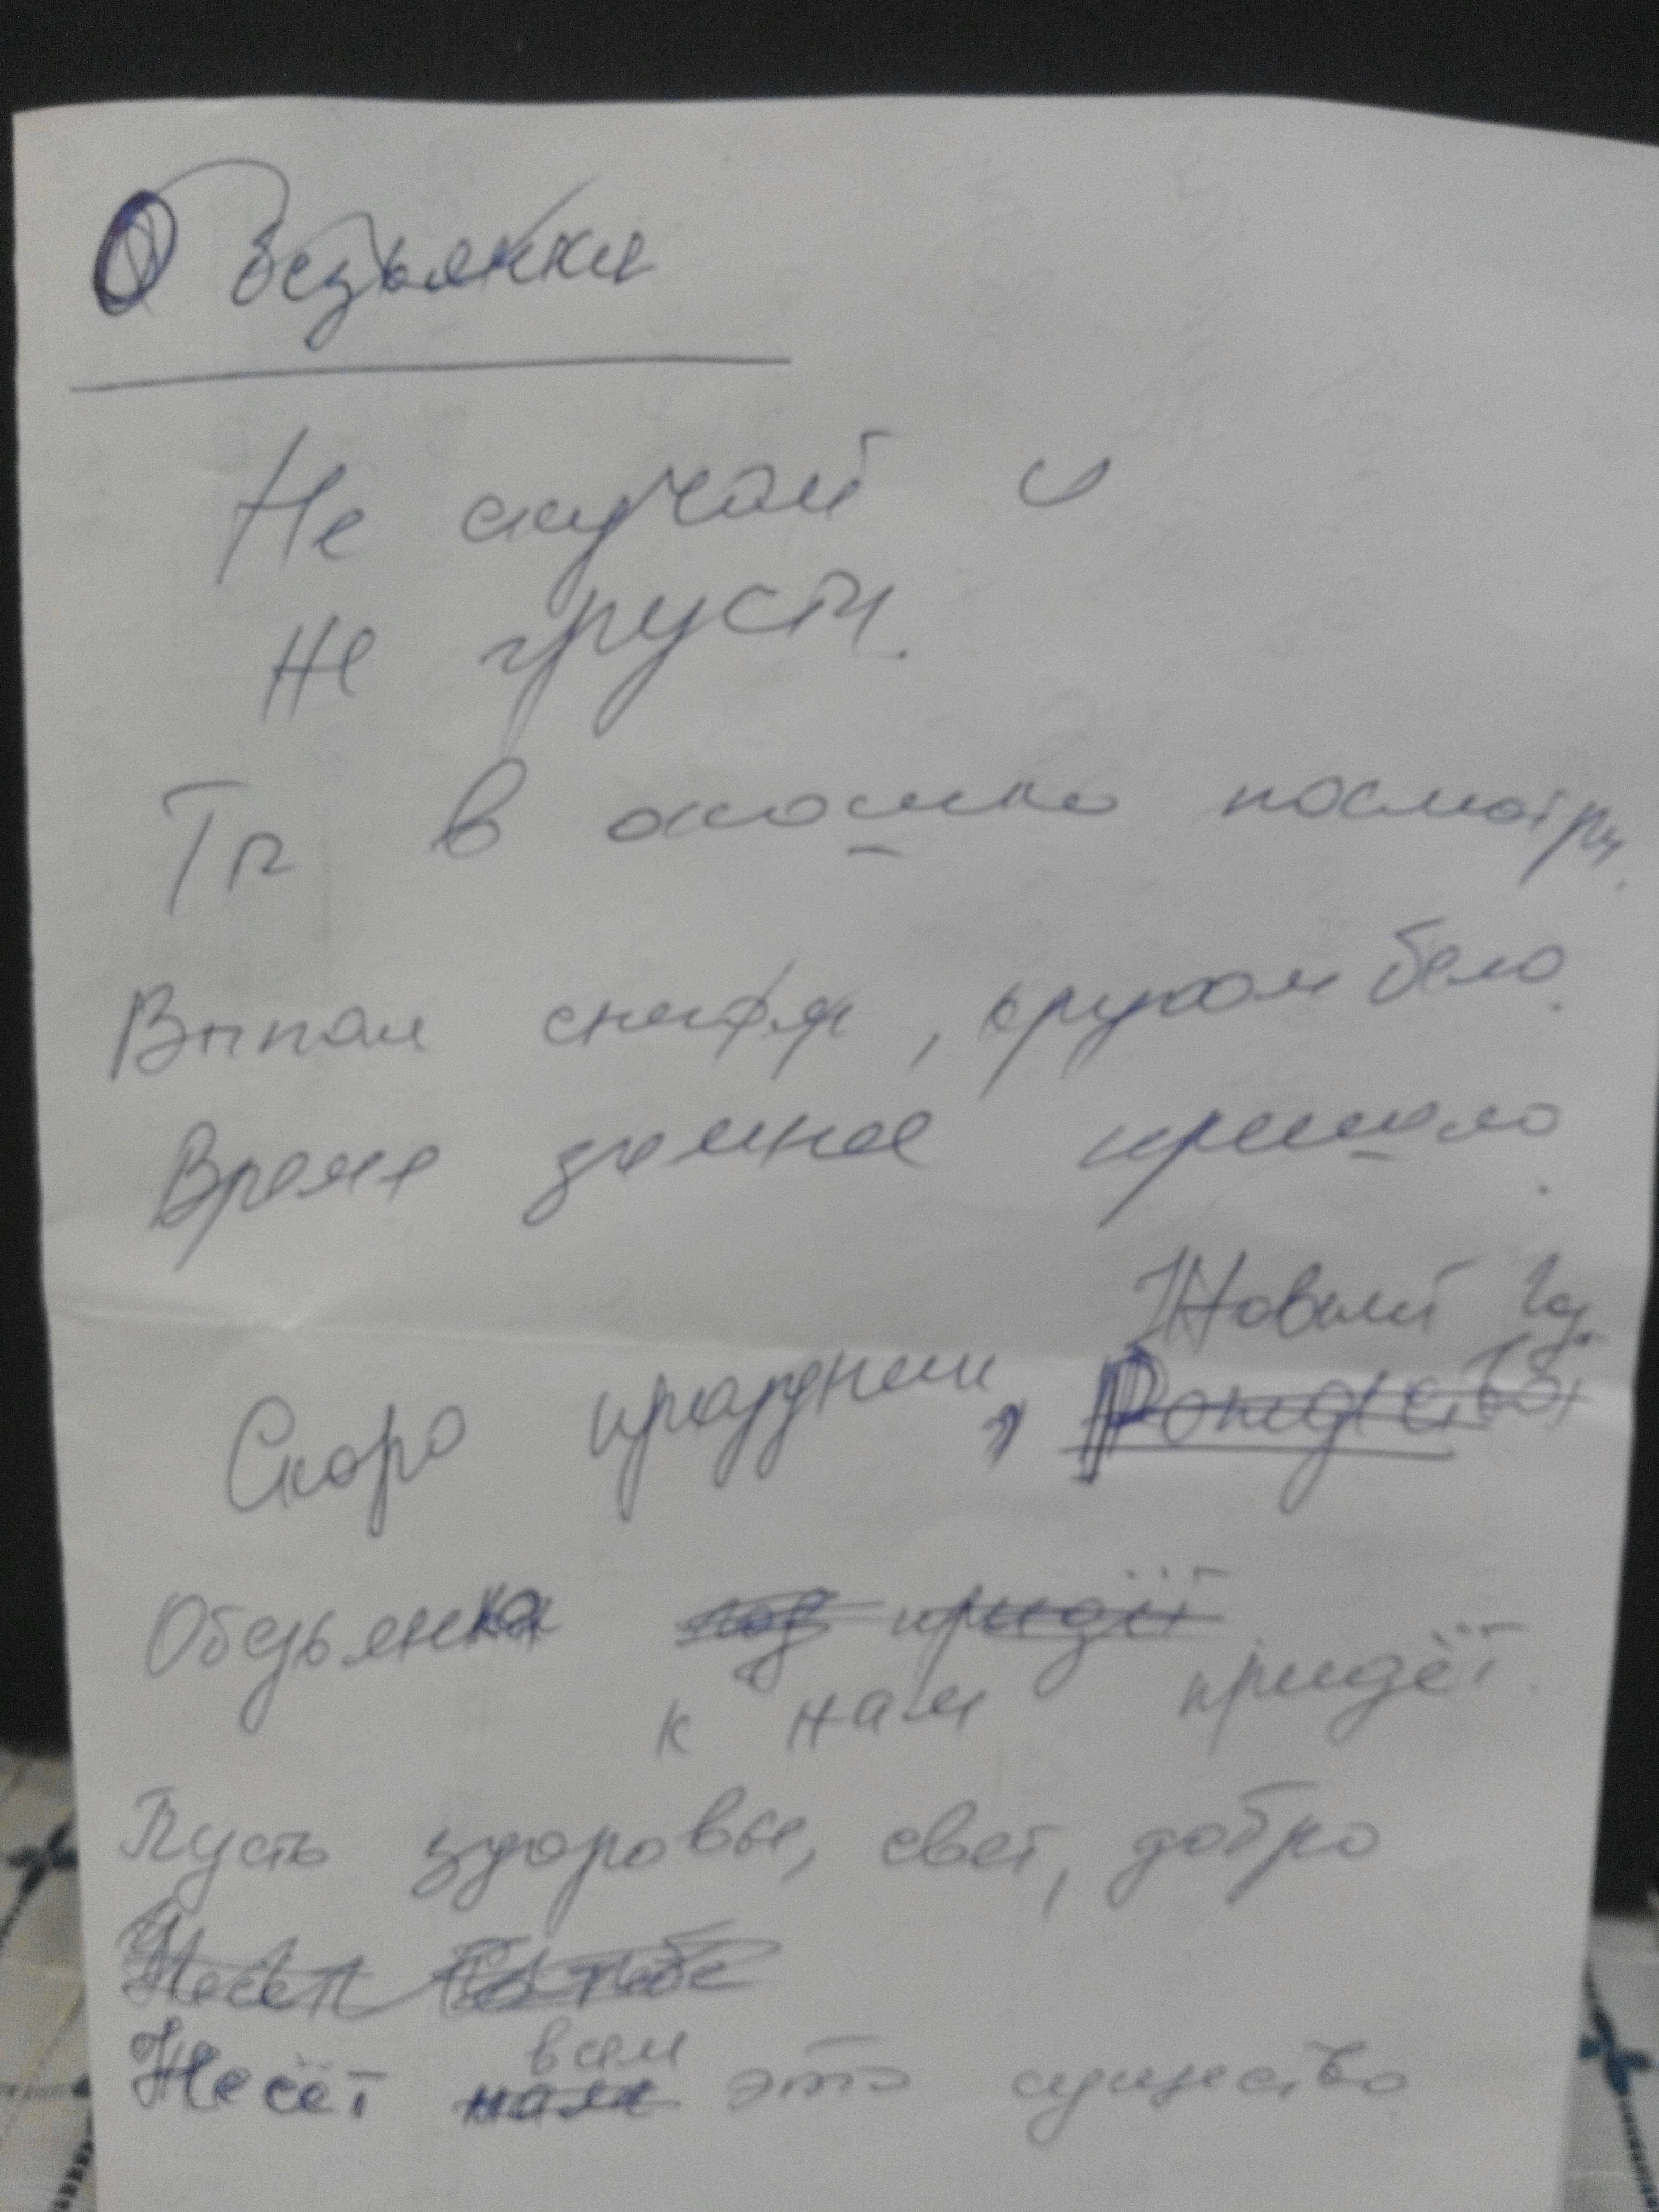 Обезьянки
Не скучай и
не грусти.
Ты в окошко посмотри.
Выпал снег, кругом бело.
Время зимнее пришло.
Новый год.
Скоро праздник, Рождество
Обезьянка год придёт
к нам придёт.
Пусть здоровье, свет, добро
Несёт тебе
Несёт всем нам это существо